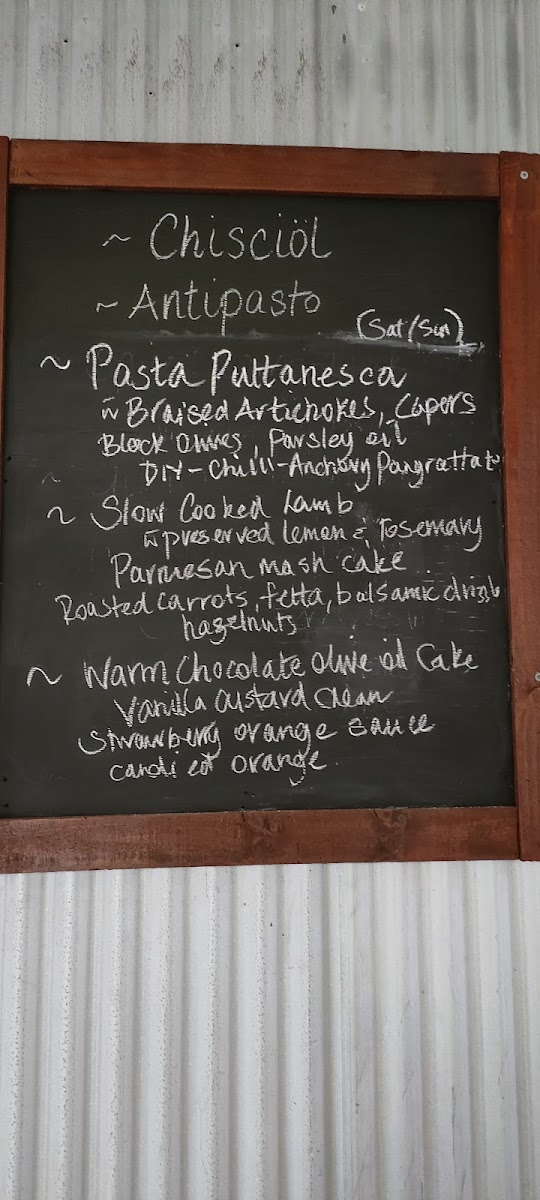 ~ Chisciöl
~ Antipasto
(Sat/Sun)
~ Pasta Puttanesca
w Braised Artichokes, Capers
Black Olives, Parsley oil
DIY - Chilli - Anchovy Pangrattato
~ Slow Cooked Lamb
w preserved lemon & rosemary
Parmesan mash cake
Roasted carrots, fetta, balsamic drizzle
hazelnuts
~ Warm Chocolate olive oil Cake
Vanilla custard cream
Strawberry orange sauce
candied orange.